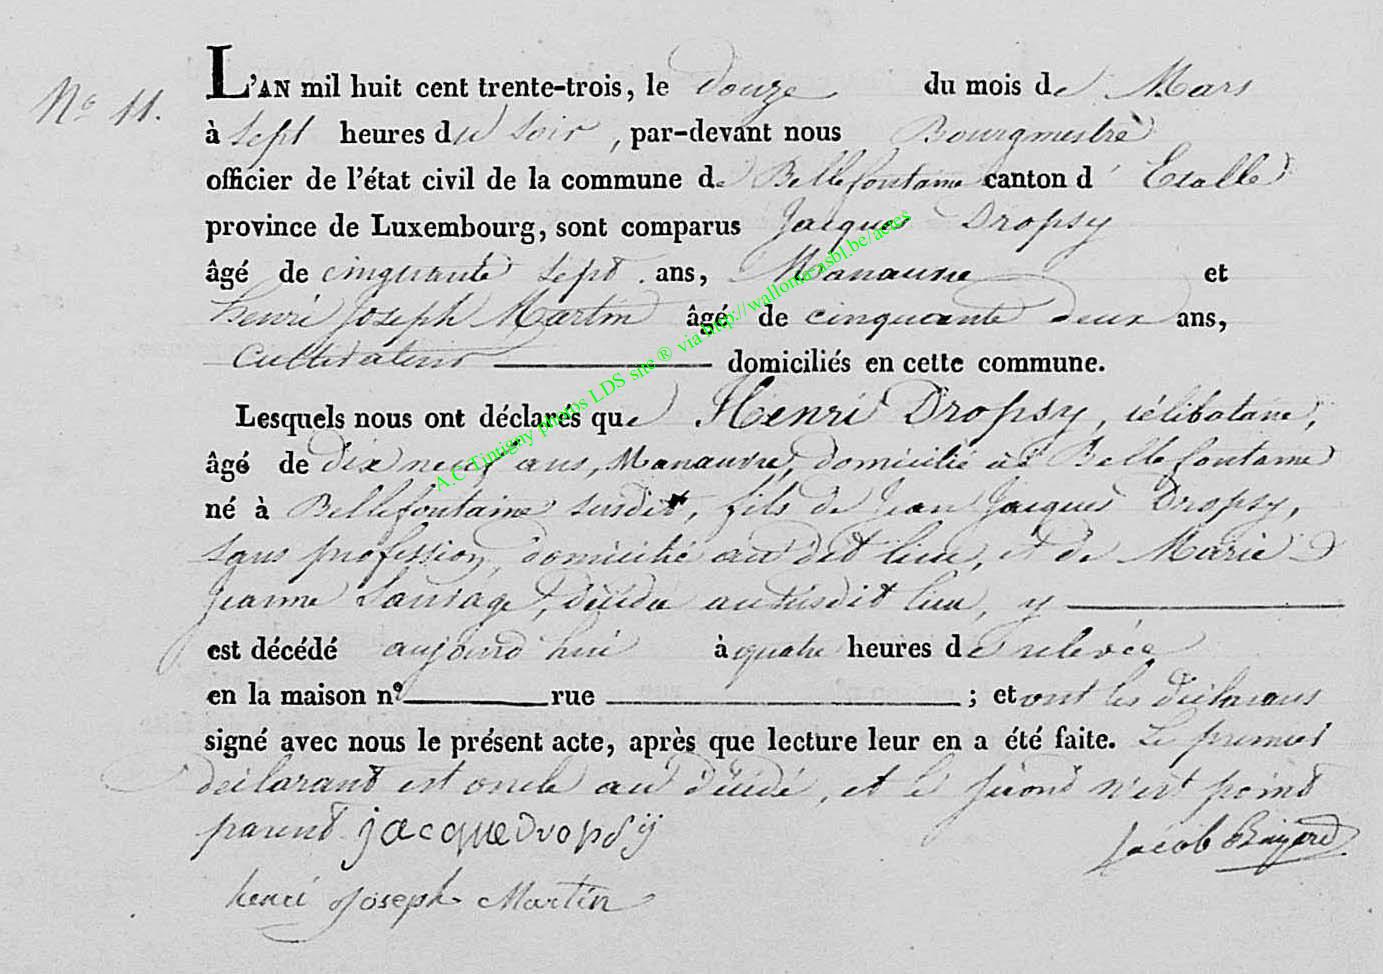 No 11.
L'AN mil huit cent trente-trois, le douze du mois de Mars
à sept heures du soir, par-devant nous Bourgmestre
officier de l'état civil de la commune de Bellefontaine canton d' Etalle
province de Luxembourg, sont comparus Jacques Dropsy
âgé de cinquante sept ans, Manœuvre et
henri Joseph Martin âgé de cinquante deux ans,
Cultivateur domiciliés en cette commune.
Lesquels nous ont déclarés que Henri Dropsy, célibataire,
âgé de dix neuf ans, Manœuvre, domicilié à Bellefontaine
né à Bellefontaine susdit, fils de Jean Jacques Dropsy,
sans profession, domicilié au dit lieu, et de Marie
Jeanne Sauvage, décédée au susdit lieu, y
est décédé aujourd'hui à quatre heures de relevée
en la maison no rue ; et ont les déclarans
signé avec nous le présent acte, après que lecture leur en a été faite. Le premier
déclarant est oncle au décédé, et le second n'est point
parent. jacque Dropsij
Jacob Bayard
henri Joseph Martin
A.C Tintigny photos LDS snc ® via http://wallonia-asbl.be/actes